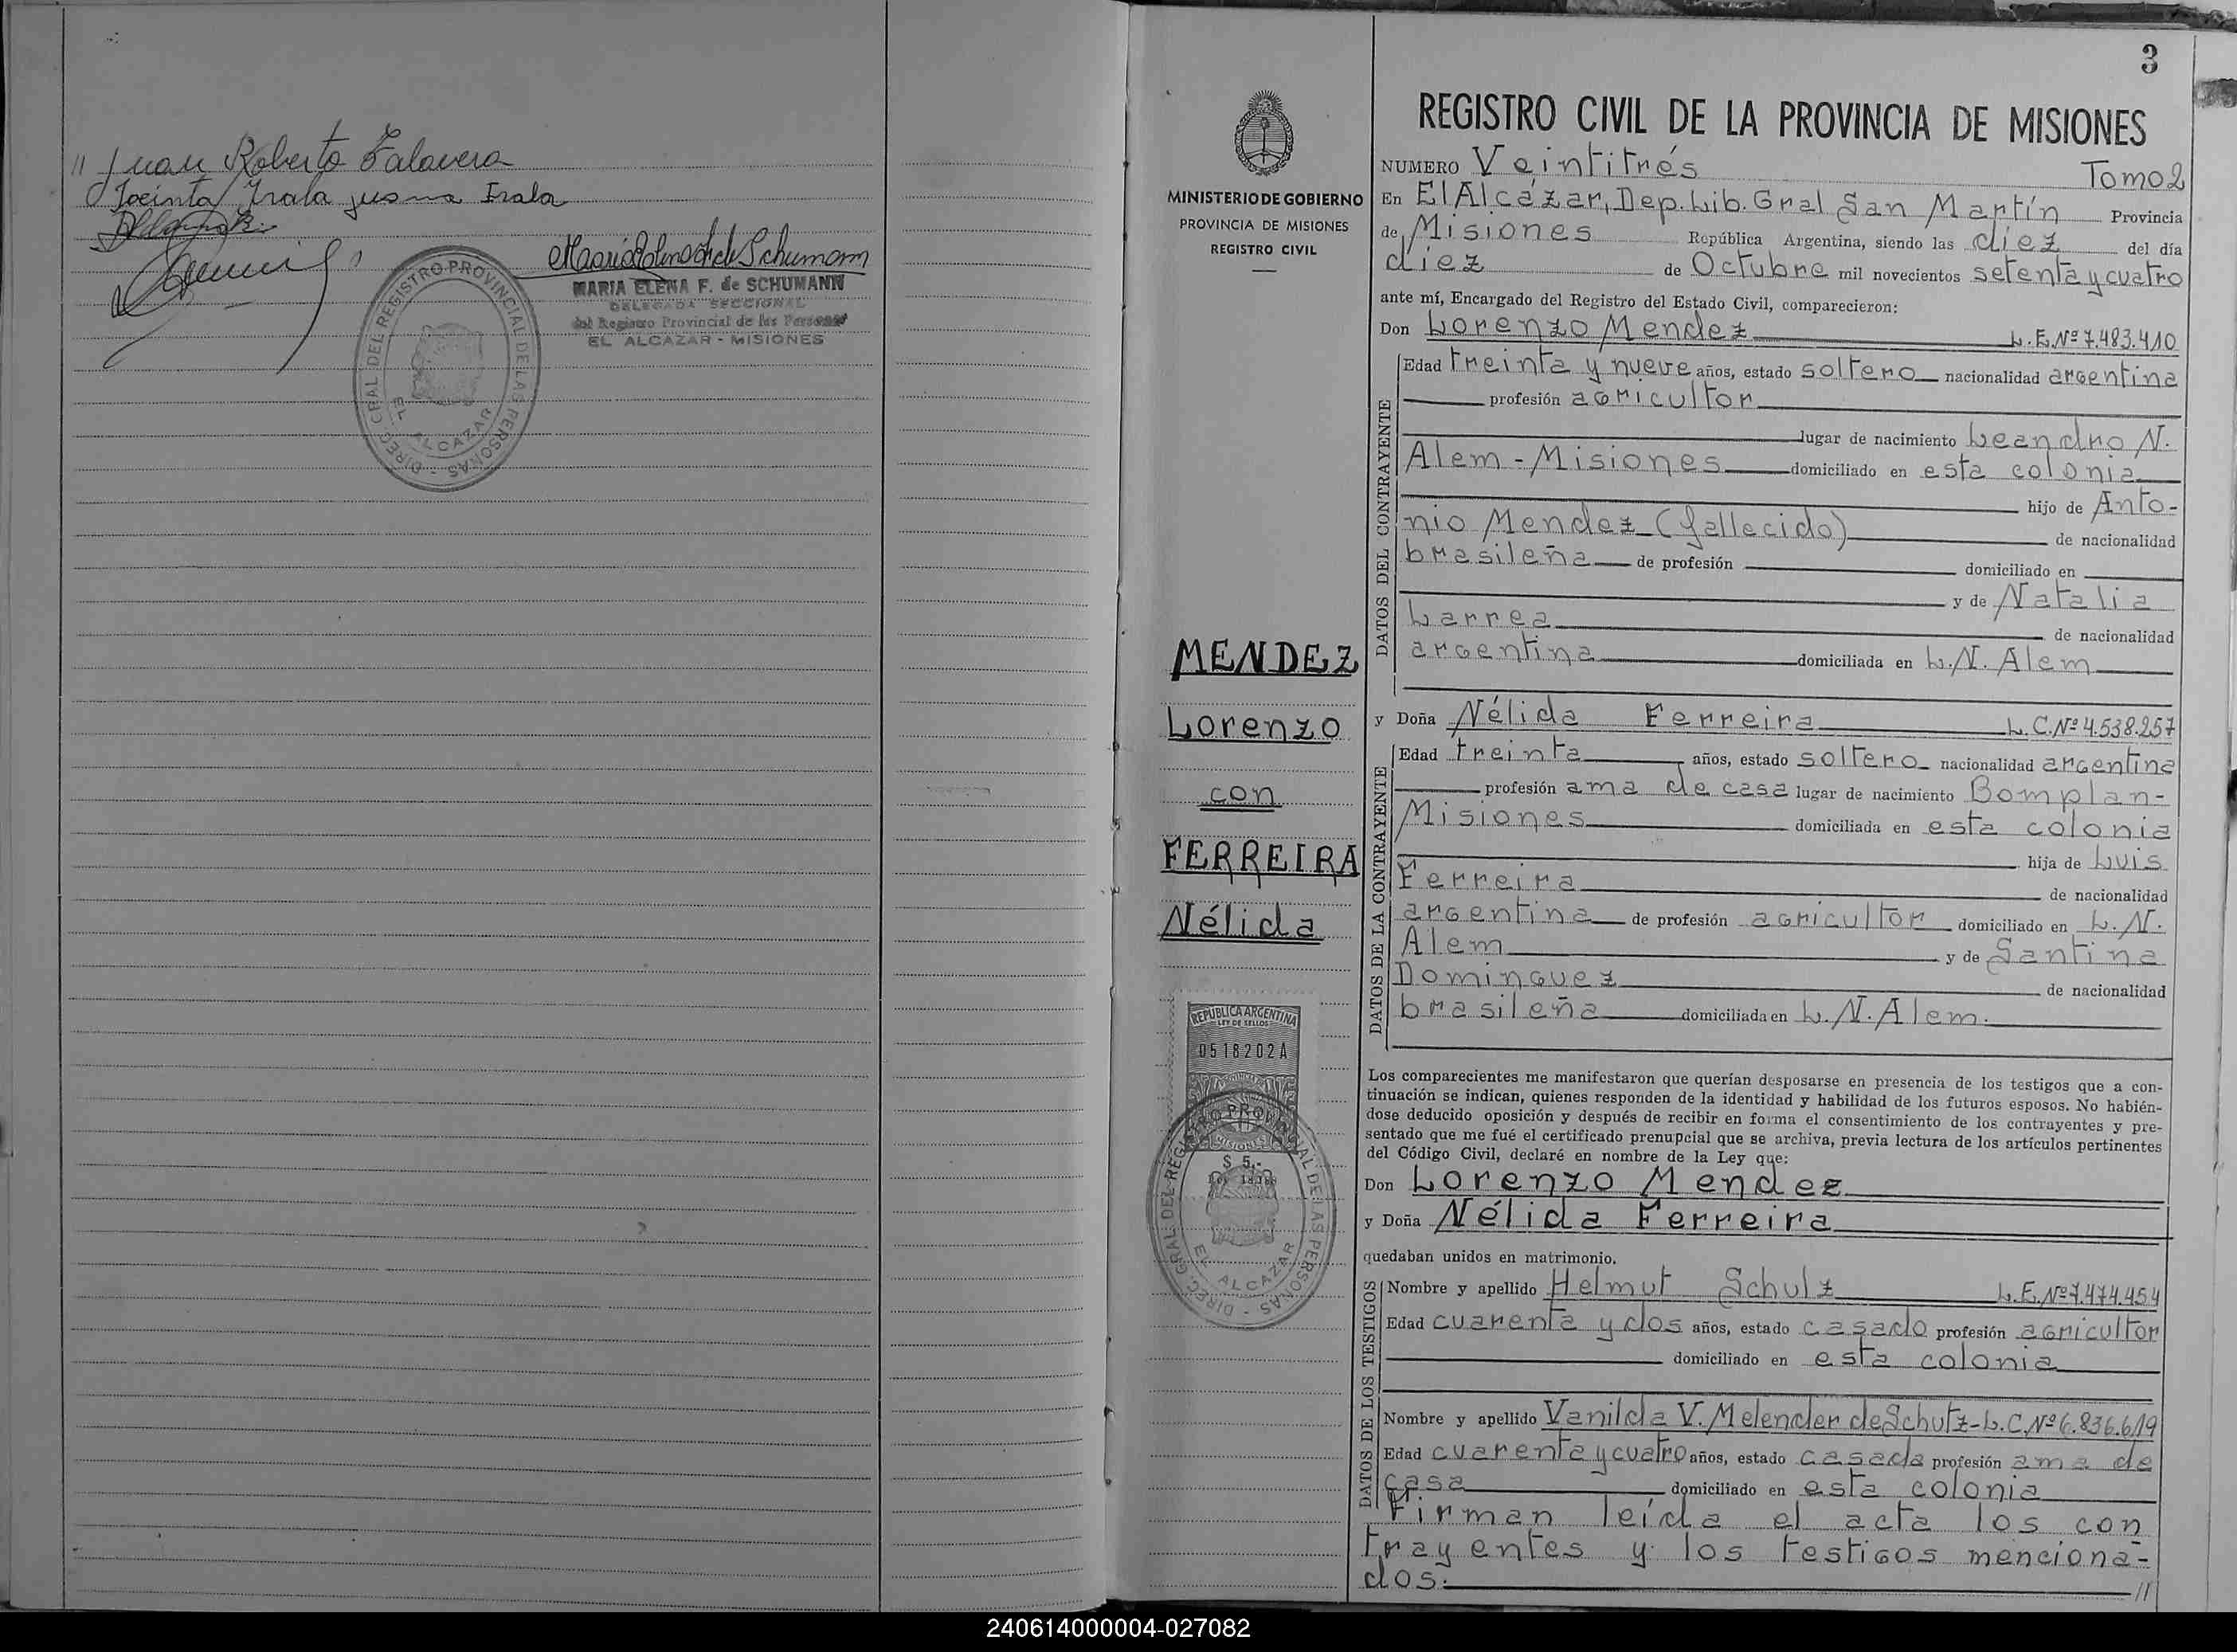 // Juan Roberto Talavera
Jacinta Irala juana Irala
MARIA ELENA F. de SCHUMANN
DELEGADA SECCIONAL
del Registro Provincial de las Personas
EL ALCAZAR - MISIONES
DIREC. GRAL DEL REGISTRO PROVINCIAL DE LAS PERSONAS -
EL ALCAZAR
3
MINISTERIO DE GOBIERNO
PROVINCIA DE MISIONES
REGISTRO CIVIL
MENDEZ
Lorenzo
con
FERREIRA
Nélida
REPUBLICA ARGENTINA
LEY DE SELLOS
0518202A
MISIONES
$ 5,-
DIREC. GRAL DEL REGISTRO PROVINCIAL DE LAS PERSONAS -
EL ALCAZAR
REGISTRO CIVIL DE LA PROVINCIA DE MISIONES
NUMERO Veintitrés Tomo 2
En El Alcázar, Dep. Lib. Gral San Martín Provincia
de Misiones República Argentina, siendo las diez del día
diez de Octubre mil novecientos setenta y cuatro
ante mí, Encargado del Registro del Estado Civil, comparecieron:
Don Lorenzo Mendez L.E.Nº 7.483.410
DATOS DEL CONTRAYENTE
Edad treinta y nueve años, estado soltero nacionalidad argentina
profesión agricultor
lugar de nacimiento Leandro N.
Alem - Misiones domiciliado en esta colonia
hijo de Anto-
nio Mendez (fallecido) de nacionalidad
brasileña de profesión domiciliado en
y de Natalia
Larrea de nacionalidad
argentina domiciliada en L.N. Alem
y Doña Nélida Ferreira L.C.Nº 4.538.257
DATOS DE LA CONTRAYENTE
Edad treinta años, estado soltero nacionalidad argentina
profesión ama de casa lugar de nacimiento Bomplan-
Misiones domiciliada en esta colonia
hija de Luis
Ferreira de nacionalidad
argentina de profesión agricultor domiciliado en L. N.
Alem y de Santina
Dominguez de nacionalidad
brasileña domiciliada en L.N. Alem.
Los comparecientes me manifestaron que querían desposarse en presencia de los testigos que a con-
tinuación se indican, quienes responden de la identidad y habilidad de los futuros esposos. No habién-
dose deducido oposición y después de recibir en forma el consentimiento de los contrayentes y pre-
sentado que me fué el certificado prenupcial que se archiva, previa lectura de los artículos pertinentes
del Código Civil, declaré en nombre de la Ley que:
Don Lorenzo Mendez
y Doña Nélida Ferreira
quedaban unidos en matrimonio.
DATOS DE LOS TESTIGOS
Nombre y apellido Helmut Schulz L.E.Nº 7.474.454
Edad cuarenta y dos años, estado casado profesión agricultor
domiciliado en esta colonia
Nombre y apellido Vanilda V. Melender de Schutz - L.C.Nº 6.836.619
Edad cuarenta y cuatro años, estado casada profesión ama de
casa domiciliado en esta colonia
Firman leída el acta los con
trayentes y los testigos menciona-
dos. //
240614000004-027082